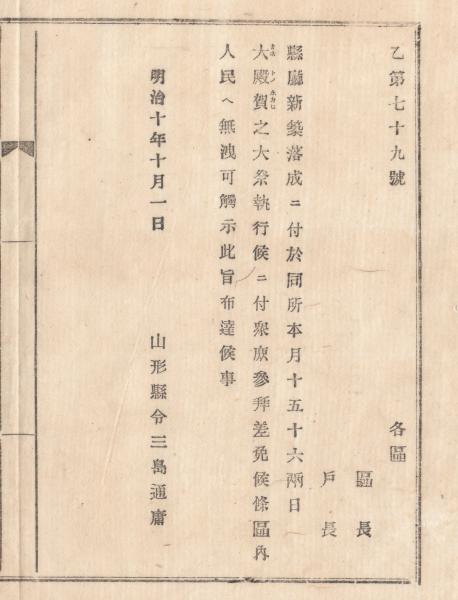 乙第七十九號
各區
區長
戶長
縣廳新築落成ニ付於同所本月十五十六兩日
大殿賀之大祭執行候ニ付衆庶參拜差免候條區內
人民ヘ無洩可觸示此旨布達候事
明治十年十月一日　山形縣令三島通庸